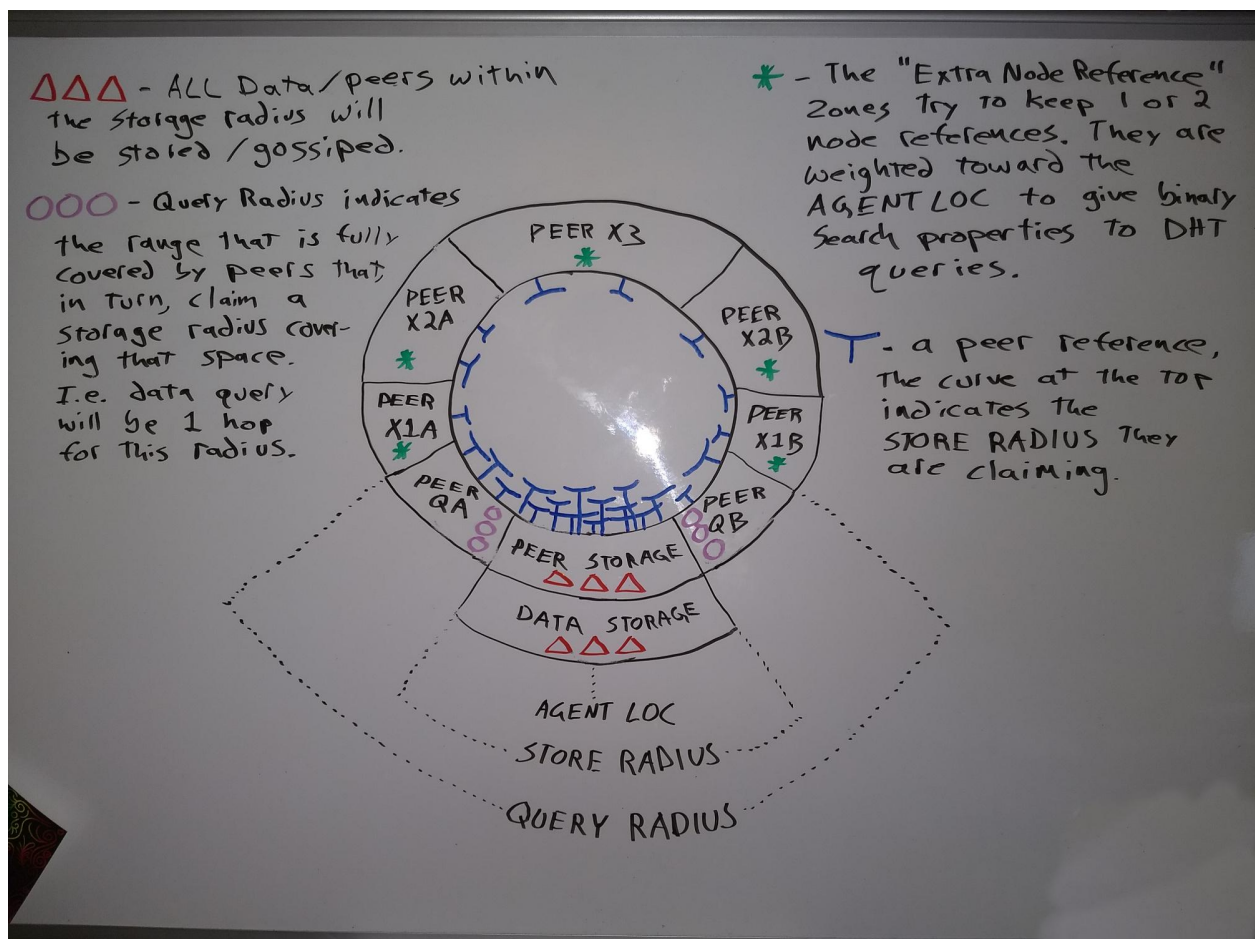 - ALL Data/peers within
the storage radius will
be stored/gossiped.
- Query Radius indicates
the range that is fully
covered by peers that,
in turn, claim a
storage radius cover-
ing that space.
I.e. data query
will be 1 hop
for this radius.
* - The "Extra Node Reference"
Zones try to keep 1 or 2
node references. They are
weighted toward the
AGENT LOC to give binary
search properties to DHT
queries.
- a peer reference,
The curve at the top
indicates the
STORE RADIUS They
are claiming.
PEER X3
PEER
X2A
PEER
X2B
PEER
X1A
PEER
X1B
PEER
QA
PEER
QB
PEER STORAGE
DATA STORAGE
AGENT LOC
STORE RADIUS
QUERY RADIUS